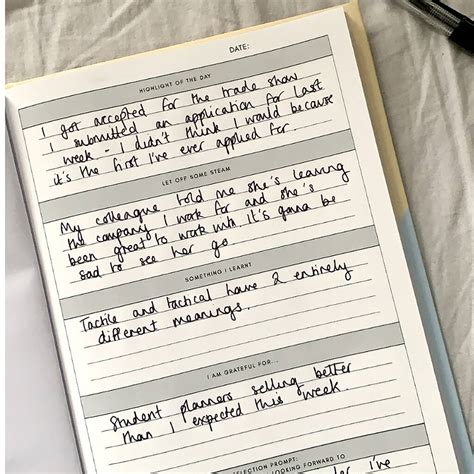 DATE:
HIGHLIGHT OF THE DAY
I got accepted for the trade show
I submitted an application for last
week - I didn't think I would because
it's the first I've ever applied for.
LET OFF SOME STEAM
My colleague told me she's leaving
the company I work for and she's
been great to work with. it's gonna be
sad to see her go
SOMETHING I LEARNT
Tactile and tactical have 2 entirely
different meanings.
I AM GRATEFUL FOR...
Student planners selling better
than I expected this week.
FLECTION PROMPT:
LOOKING FORWARD TO
I've